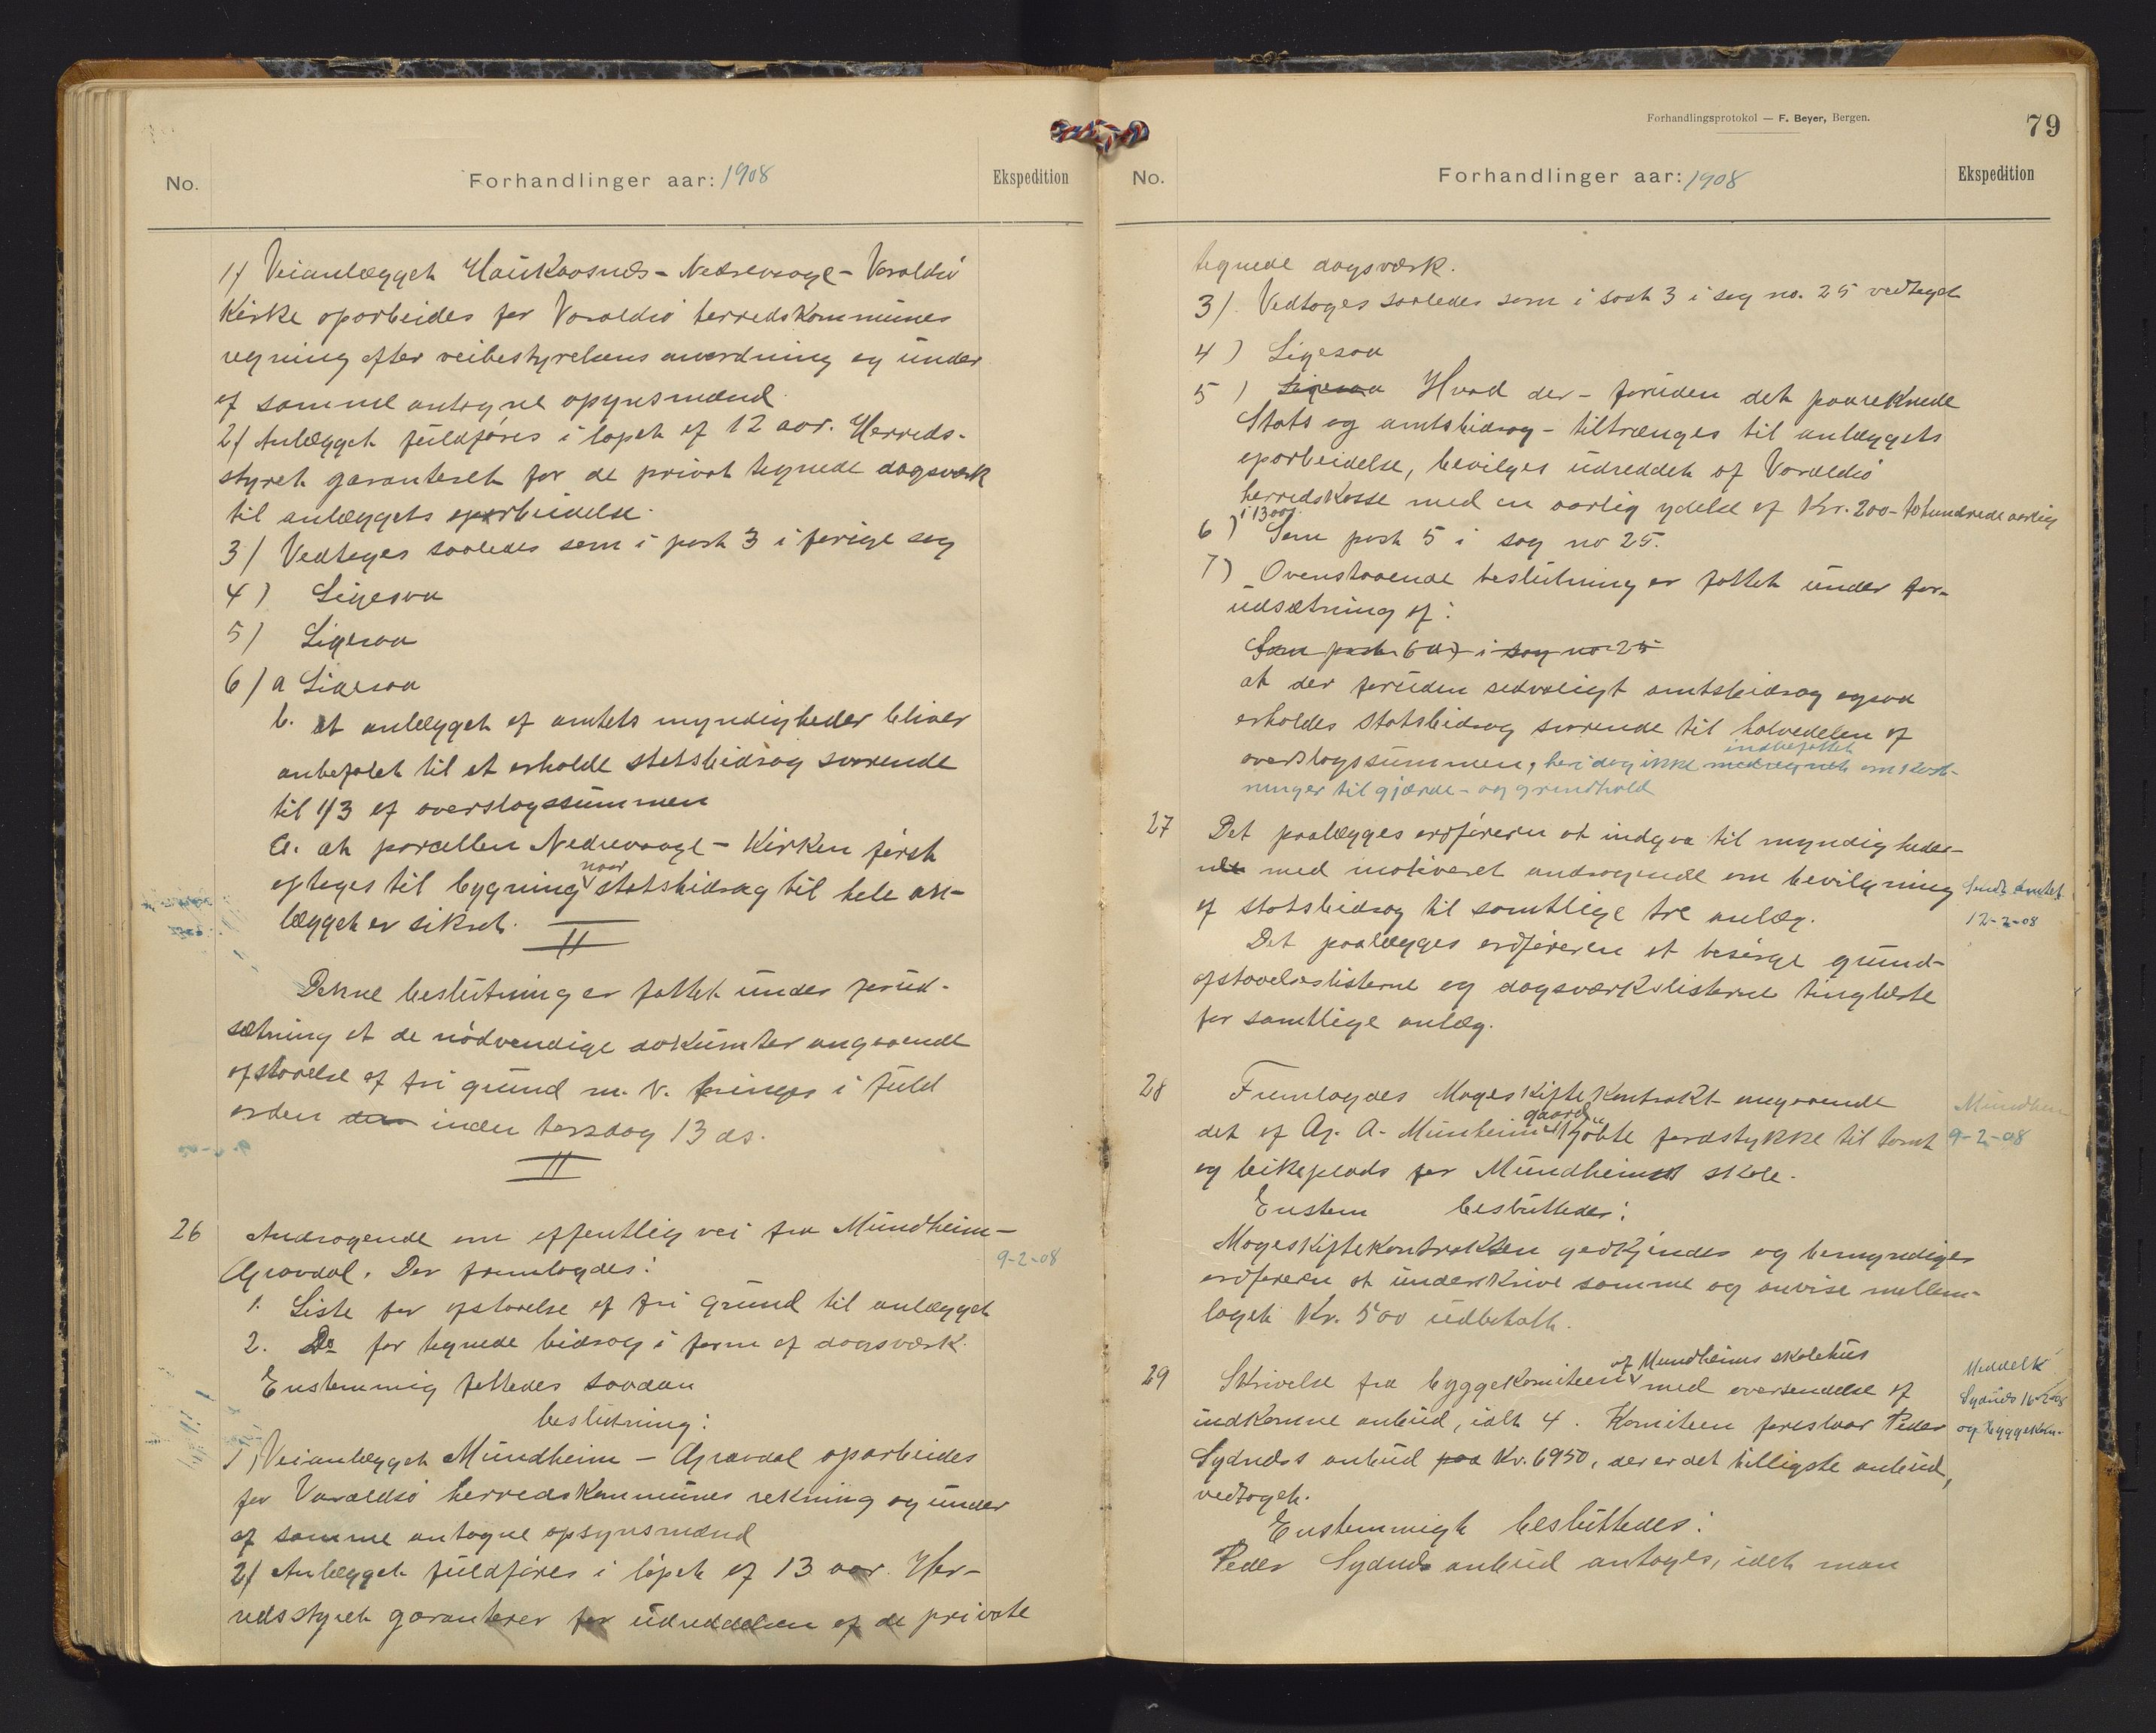 No.
Forhandlinger aar: 1908
Ekspedition
1) Veianlægget Haukaasnæs - Nedrevaage - Varaldsø
Kirke oparbeides for Varaldsø herredskommunes
regning efter veibestyrelsens anordning og under
af samme antagne opsynsmænd
2) Anlægget fuldføres i løpet af 12 aar. Herreds-
styret garanteret for de privat tegnede dagsværk
til anlæggets oparbeidelse.
3) Vedtages saaledes som i post 3 i forige sag
4) Ligesaa
5) Ligesaa
6) a Ligesaa
b. at anlægget af amtets myndigheder bliver
anbefalet til at erholde statsbidrag svarende
til 1/3 af overslagssummen
c. at parcellen Nedrevaage - Kirken først
optages til bygning naar statsbidrag til hele an-
lægget er sikret.
Denne beslutning er fattet under forud-
sætning at de nødvendige dokumter angaaende
afstaaelse af fri grund m. v. bringes i fuld
orden den inden torsdag 13 ds.
26 Andragende om offentlig vei fra Mundheim -
Gravdal. Der fremlagdes:
9-2-08
1. Liste for afstaaelse af fri grund til anlægget
2. Do for tegnede bidrag i form af dagsværk.
Enstemmig fattedes saadan
beslutning:
1) Veianlægget Mundheim - Gravdal oparbeides
for Varaldsø herredskommunes rekning og under
af samme antagne opsynsmænd
2) Anlægget fuldføres i løpet af 13 aar. Her-
redsstyret garanterer for udreddelsen af de private
Forhandlingsprotokol — F. Beyer, Bergen.
79
No.
Forhandlinger aar: 1908
Ekspedition
tegnede dagsværk.
3) Vedtoges saaledes som i post 3 i sag no. 25 vedtaget
4) Ligesaa
5) Ligesaa Hvad der - foruden det paareknede
Stats og amtsbidrag - tiltrænges til anlæggets
oparbeidelse, bevilges udreddet af Varaldsø
herredskasse med en aarlig ydelse af Kr. 200 - tohundrede aarlig
i 13 aar.
6) Som post 5 i sag no 25.
7) Ovenstaaende beslutning er fattet under for-
udsætning af:
Som post 6 a) i sag no 25
at der foruden sedvaligt amtsbidrag ogsaa
erholdes statsbidrag svarende til halvedelen af
overslagssummen, heri dog ikke medregnet indbefattet omkost-
ninger til gjærde- og grindhold
27 Det paalægges ordføreren at indgaa til myndighede-
ne med motiveret andragende om bevilgning
af statsbidrag til samtlige tre anlæg.
Sendt Amtet
12-2-08
Det paalægges ordføreren at besørge grund-
afstaaelseslisterne og dagsværkslisterne tinglæste
for samtlige anlæg.
28 Fremlagdes Mageskiftekontrakt angaaende
det af Aj. A. Munheim gaard kjøbte jordstykke til tomt
og leikeplads for Mundheims skole.
Mundheim
9-2-08
Enstem besluttedes:
Mageskiftekontrakten godkjendes og bemyndiges
ordføreren at underskrive samme og anvise mellem-
laget Kr. 500 udbetalt.
29 Skrivelse fra byggekomiteen af Mundheims skolehus med oversendelse af
indkomne anbud, ialt 4. Komiteen forestaar Peder
Sydnæs anbud paa Kr. 6950, der er det billigste anbud,
vedtaget.
Meddelt
Sydnæs 16-2-08
og byggekom.
Enstemmigt besluttedes:
Peder Sydnæs anbud antages, idet man